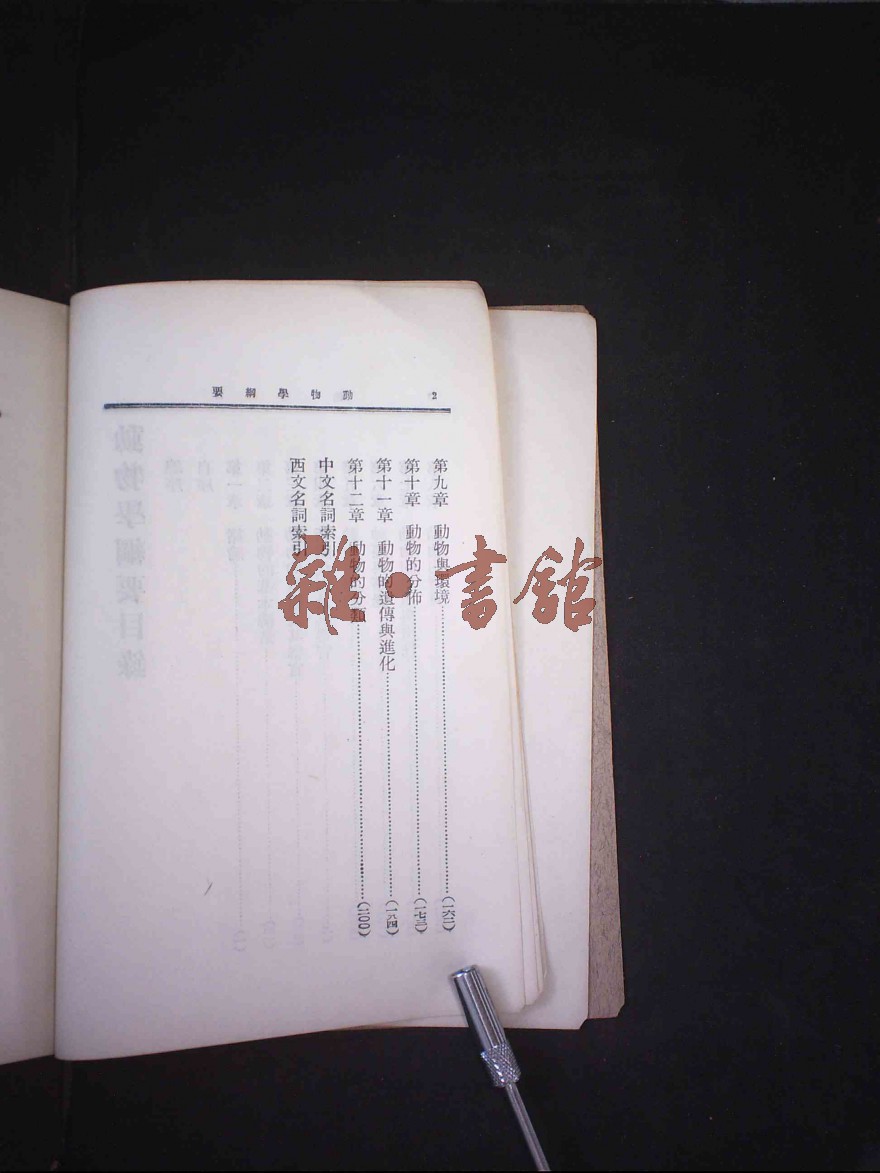 2 動物學綱要
第九章 動物與環境……(一六二)
第十章 動物的分佈……(一七三)
第十一章 動物的遺傳與進化……(一九四)
第十二章 動物的分類……(二〇〇)
中文名詞索引
西文名詞索引
雜·書館